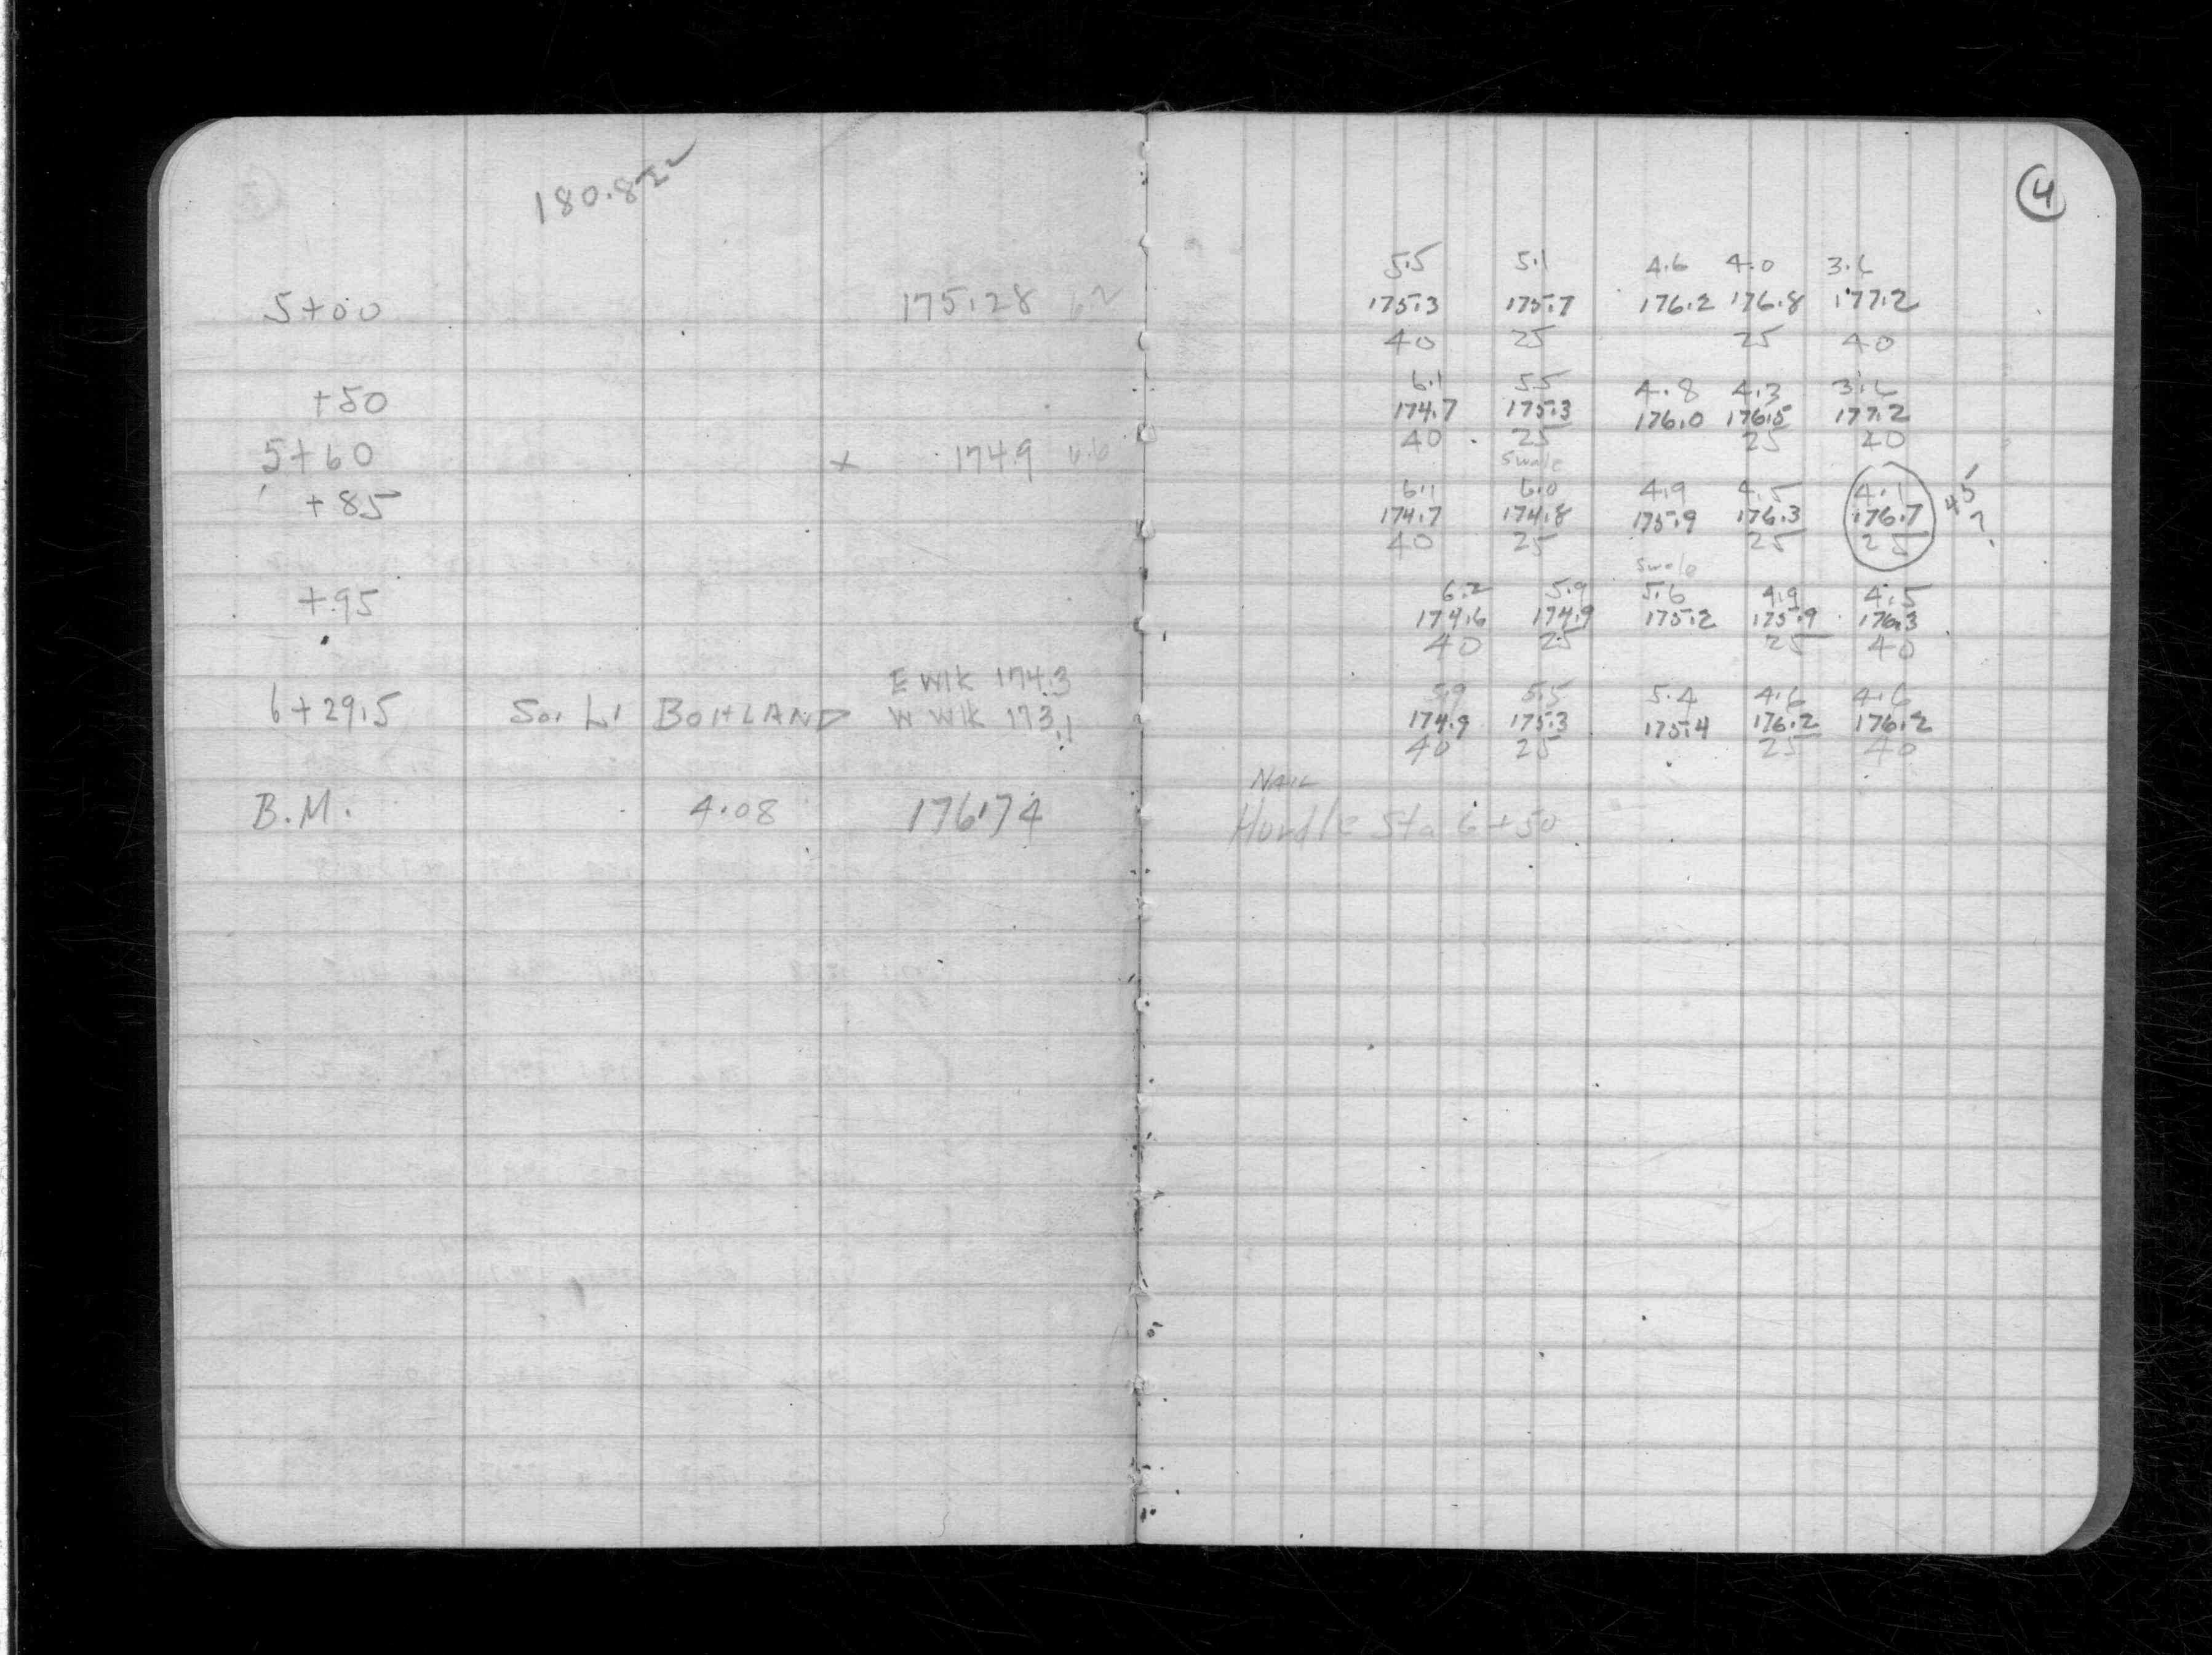 180.82
5+00 175.28 6.2
+50
5+60 x 174.9 6.6
+85
+95
E WIK 174.3
6+29.5 So. Li BOHLAND W WIK 173.1
B.M. 4.08 176.74
4
5.5 5.1 4.6 4.0 3.6
175.3 175.7 176.2 176.8 177.2
40 25 25 40
6.1 5.5 4.8 4.3 3.6
174.7 175.3 176.0 176.5 177.2
40 25 25 40
swale
6.1 6.0 4.9 4.5 4.1 45'
174.7 174.8 175.9 176.3 176.7 ?
40 25 25 25
swale
6.2 5.9 5.6 4.9 4.5
174.6 174.9 175.2 175.9 176.3
40 25 25 40
5.9 5.5 5.4 4.6 4.6
174.9 175.3 175.4 176.2 176.2
40 25 25 40
NAIL
Hurdle Sta 6+50